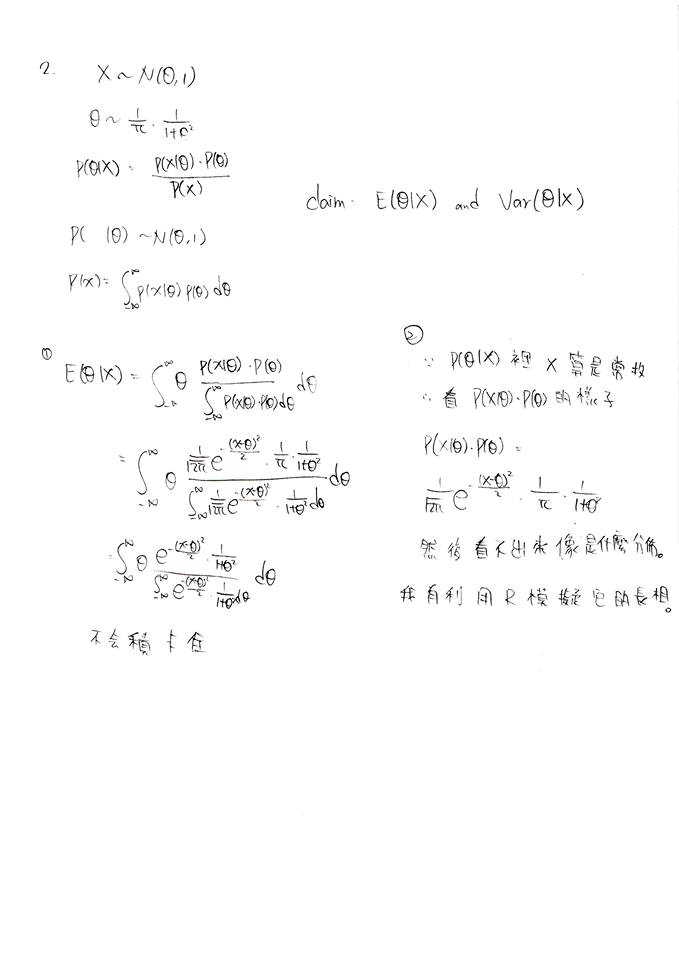 2. X ~ N(θ,1)
θ ~ 1/π · 1/(1+θ²)
P(θ|X) = P(X|θ)·P(θ) / P(X)
claim: E(θ|X) and Var(θ|X)
P( |θ) ~ N(θ,1)
P(x) = ∫_{-∞}^{∞} P(X|θ) P(θ) dθ
①
E(θ|X) = ∫_{-∞}^{∞} θ P(X|θ)·P(θ) / ∫_{-∞}^{∞} P(X|θ)·P(θ)dθ dθ
= ∫_{-∞}^{∞} θ (1/√2π e^{-(x-θ)²/2} · 1/π · 1/(1+θ²)) / (∫_{-∞}^{∞} 1/√2π e^{-(x-θ)²/2} · 1/(1+θ²) dθ) dθ
= ∫_{-∞}^{∞} θ (e^{-(x-θ)²/2} · 1/(1+θ²)) / (∫_{-∞}^{∞} e^{-(x-θ)²/2} · 1/(1+θ²) dθ) dθ
不会積 卡住
②
∵ P(θ|X) 裡 X 算是常数
∴ 看 P(X|θ)·P(θ) 的樣子
P(X|θ)·P(θ) =
1/√2π e^{-(x-θ)²/2} · 1/π · 1/(1+θ²)
然後看不出來像是什麼分佈。
我有利用 R 模擬它的長相。